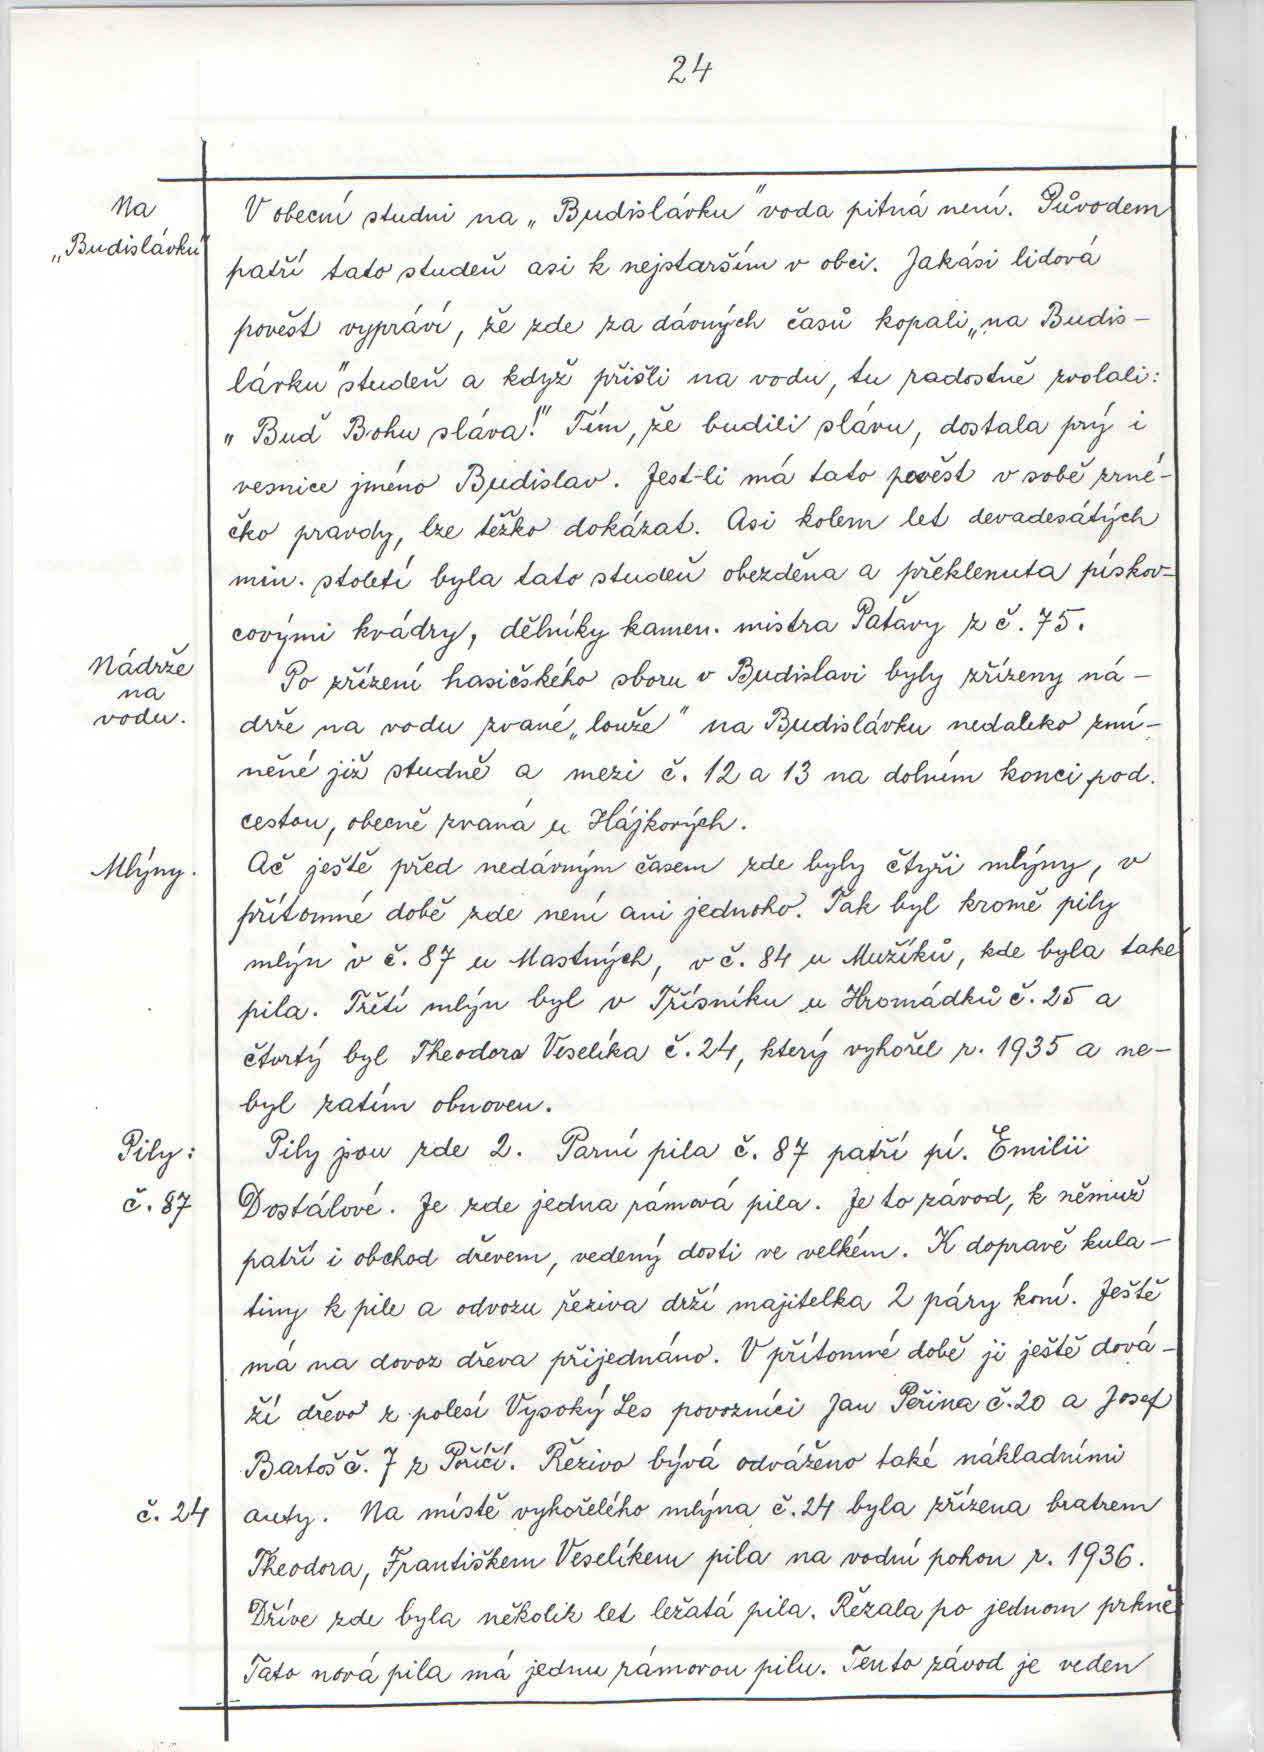 24
Na
„Budislávku"
V obecní studni na „Budislávku" voda pitná není. Původem
patří tato studeň asi k nejstarším v obci. Jakási lidová
pověst vypráví, že zde za dávných časů kopali „na Budis-
lávku" studeň a když přišli na vodu, tu radostně zvolali:
„Buď Bohu sláva!" Tím, že budili slávu, dostala prý i
vesnice jméno Budislav. Jest-li má tato pověst v sobě zrné-
čko pravdy, lze těžko dokázat. Asi kolem let devadesátých
min. století byla tato studeň obezděna a překlenuta pískov-
covými kvádry, dělníky kamen. mistra Paťavy z č. 75.
Nádrže
na
vodu.
Po zřízení hasičského sboru v Budislavi byly zřízeny ná-
drže na vodu zvané „louže" na Budislávku nedaleko zmí-
něné již studně a mezi č. 12 a 13 na dolním konci pod
cestou, obecně zvaná u Hájkových.
Mlýny.
Ač ještě před nedávným časem zde byly čtyři mlýny, v
přítomné době zde není ani jednoho. Tak byl kromě pily
mlýn v č. 87 u Mastných, v č. 84 u Mužíků, kde byla také
pila. Třetí mlýn byl v Třísníku u Hromádků č. 25 a
čtvrtý byl Theodora Veselíka č. 24, který vyhořel r. 1935 a ne-
byl zatím obnoven.
Pily:
č. 87
Pily jsou zde 2. Parní pila č. 87 patří pí. Emilii
Dostálové. Je zde jedna rámová pila. Je to závod, k němuž
patří i obchod dřevem, vedený dosti ve velkém. K dopravě kula-
tiny k pile a odvozu řeziva drží majitelka 2 páry koní. Ještě
má na dovoz dřeva přijednáno. V přítomné době jí ještě dová-
ží dřevo z polesí Vysoký Les povozníci Jan Peřina č. 20 a Josef
Bartoš č. 7 z Poříčí. Řezivo bývá odváženo také nákladními
č. 24
auty. Na místě vyhořelého mlýna č. 24 byla zřízena bratrem
Theodora, Františkem Veselíkem pila na vodní pohon r. 1936.
Dříve zde byla několik let ležatá pila. Řezala po jednom prkně
Tato nová pila má jednu rámovou pilu. Tento závod je veden